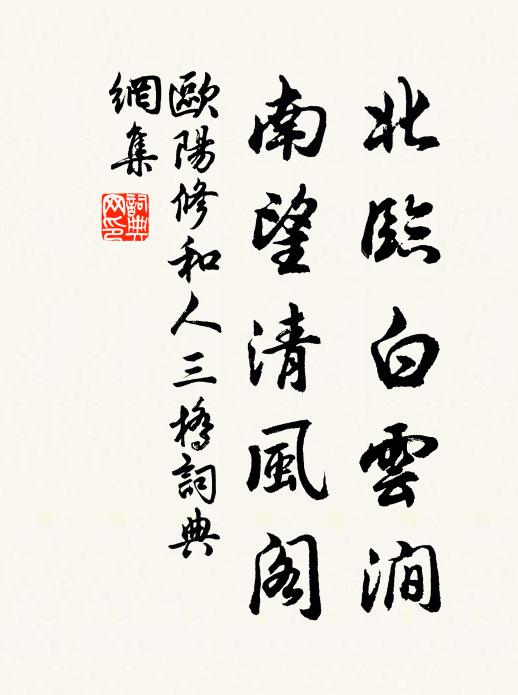 北臨白雲澗
南望清風閣
歐陽修和人三橋詞典
網集
詞典
网印